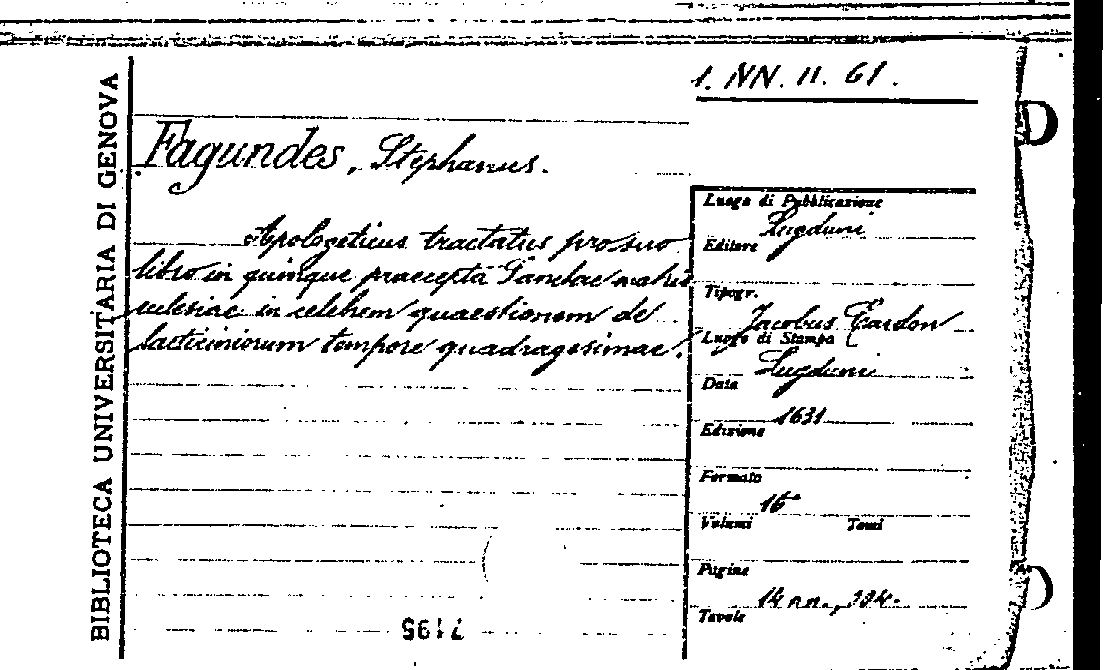 1. NN. 11. 61.
BIBLIOTECA UNIVERSITARIA DI GENOVA
Fagundes, Stephanus.
Apologeticus tractatus pro suo
libro in quinque praecepta Sanctae matris
ecclesiae in celebem quaestionem de
lacticiniorum tempore quadragesimae.
Luogo di Pubblicazione
Lugduni
Editore
Tipogr.
Jacobus Cardon
Luogo di Stampa
Lugduni
Data
1631
Edizione
Formato
Volumi Tomi
Pagine
14 nn.,
Tavole
7195